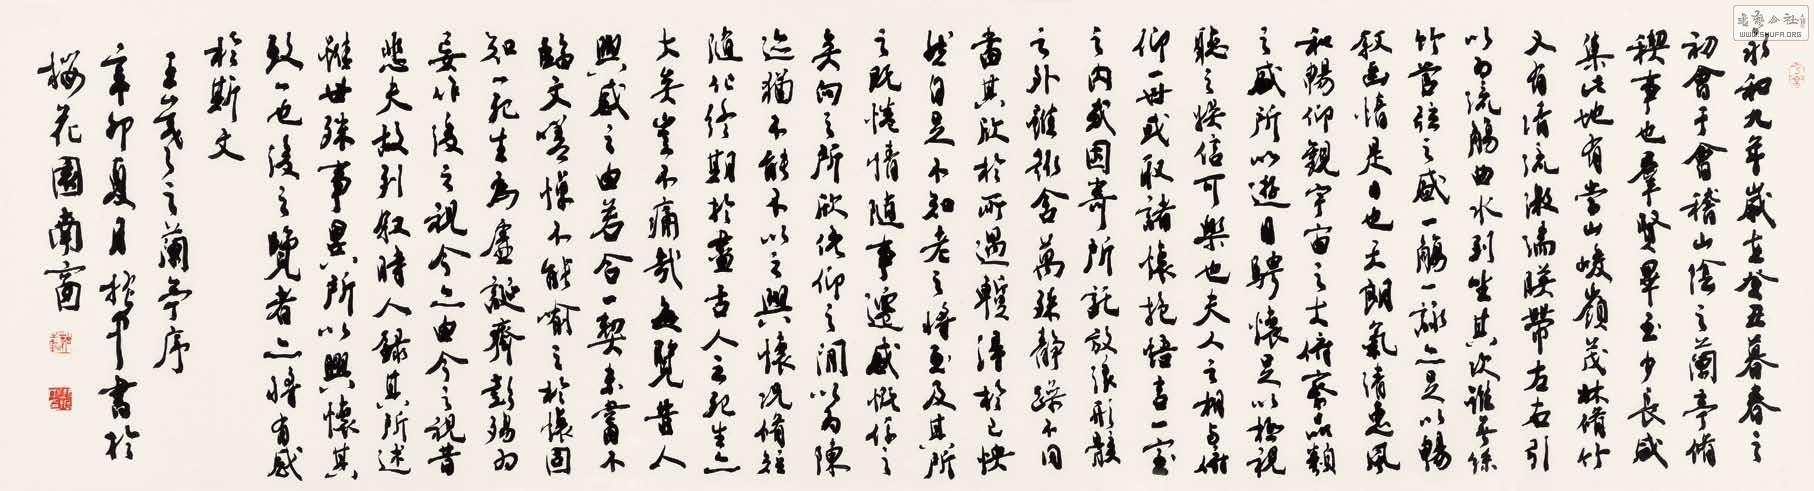 永和九年歲在癸丑暮春之
初會于會稽山陰之蘭亭脩
稧事也羣賢畢至少長咸
集此地有崇山峻嶺茂林脩竹
又有清流激湍暎帶左右引
以為流觴曲水列坐其次雖無絲
竹管弦之盛一觴一詠亦足以暢
敘幽情是日也天朗氣清惠風
和暢仰觀宇宙之大俯察品類
之盛所以遊目騁懷足以極視
聽之娛信可樂也夫人之相與俯
仰一世或取諸懷抱悟言一室
之內或因寄所託放浪形骸
之外雖趣舍萬殊靜躁不同
當其欣於所遇輙得於己怏
然自足不知老之將至及其所
之既惓情隨事遷感慨係之
矣向之所欣俛仰之閒以為陳
迹猶不能不以之興懷況脩短
隨化終期於盡古人云死生亦
大矣豈不痛哉每覽昔人
興感之由若合一契未嘗不
臨文嗟悼不能喻之於懷固
知一死生為虛誕齊彭殤為
妄作後之視今亦由今之視昔
悲夫故列敘時人錄其所述
雖世殊事異所以興懷其
致一也後之覽者亦將有感
於斯文
王羲之蘭亭序
辛卯夏月書於
櫻花園南窗
WWW.SHUFA.ORG